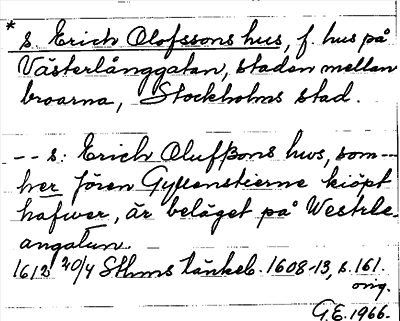 * s. Erich Olofssons hus, f. hus på
Västerlånggatan, staden mellan
broarna, Stockholms stad.
-- s: Erich Olufßons hws, som--
her Jören Gyllenstierne kiöpt
hafwer, är beläget på Westrle-
angatun.
1612 20/4 Sthms tänkeb. 1608-13, s. 161.
orig.
G.E. 1966.